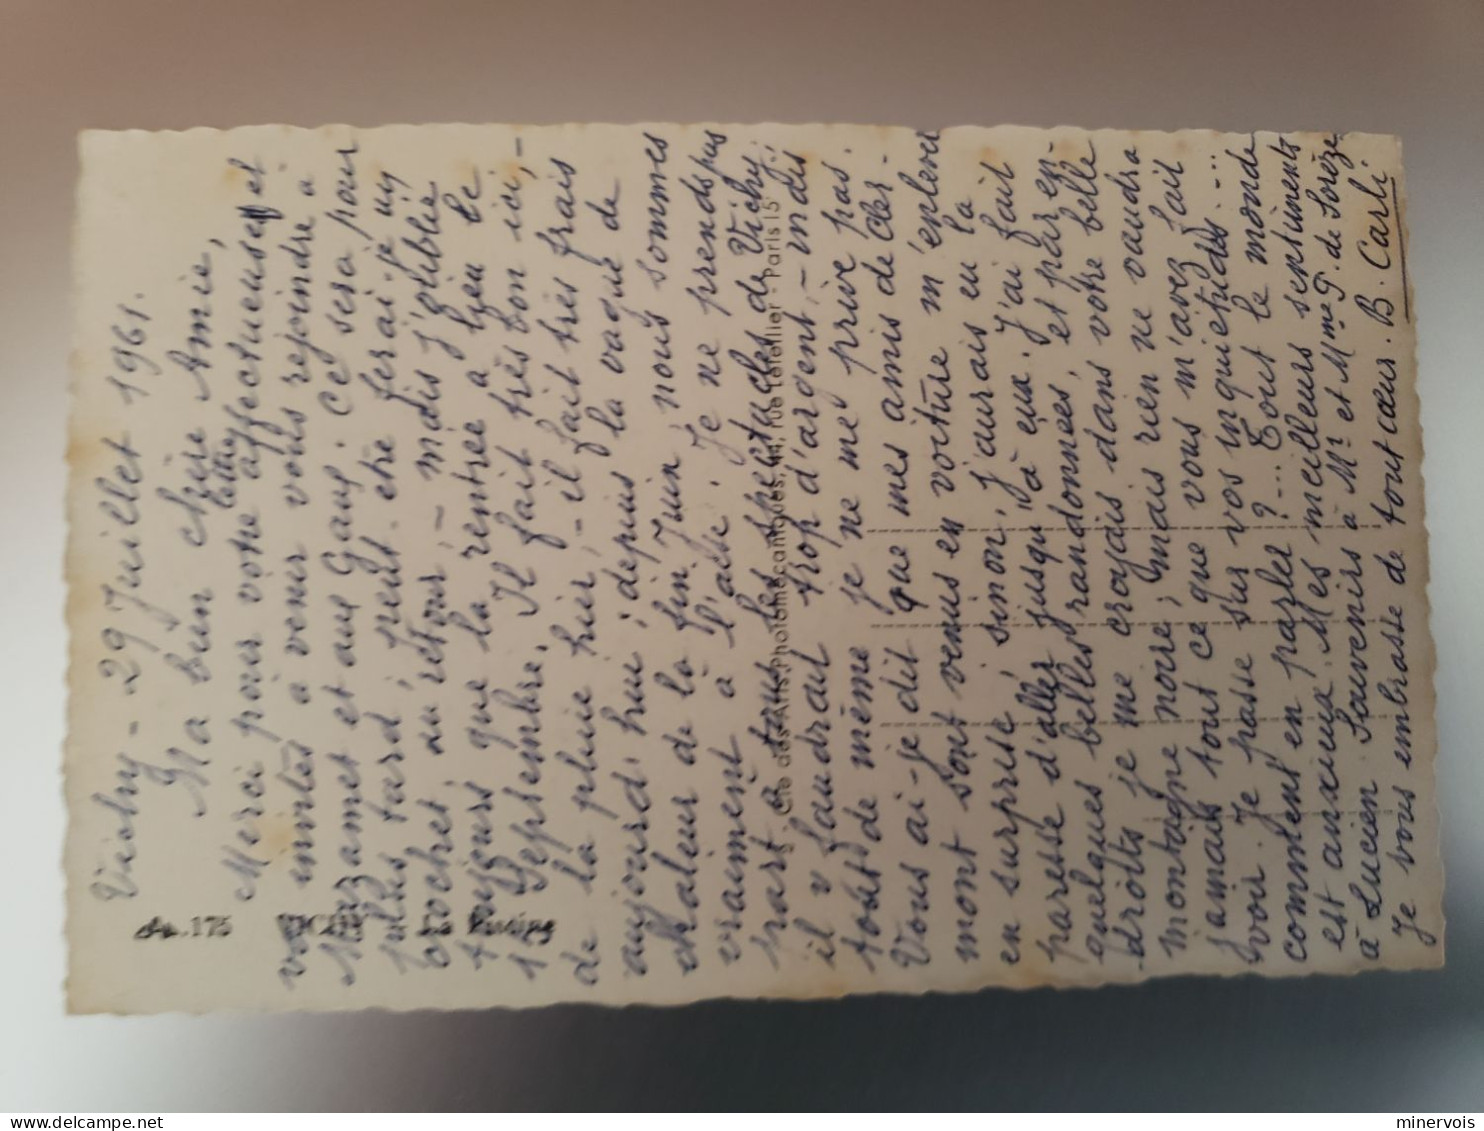 Vichy - 29 Juillet 1961.
Ma bien chère Amie,
Merci pour votre lettre affectueuse et
vos invités à venir vous rejoindre à
Mazamet et aux Gaux. Ce sera pour
plus tard, peut-être ferai-je un
crochet, au retour, - mais j'oublie
toujours que la rentrée a lieu le
15 Septembre. Il fait très bon ici, -
de la pluie hier, - il fait très frais
aujourd'hui; depuis la vague de
chaleur de la fin Juin nous sommes
vraiment à l'aise. Je ne prends pas
part à tous les spectacles de Vichy;
il y faudrait trop d'argent, - mais
tout de même je ne me prive pas.
Vous ai-je dit que mes amis de Cler-
mont sont venus en voiture m'enlever
en surprise, sinon, j'aurais eu la
paresse d'aller jusqu'à eux. J'ai fait
quelques belles randonnées, et par en-
droits je me croyais dans votre belle
montagne noire, mais rien ne vaudra
jamais tout ce que vous m'avez fait
voir. Je passe sur vos inquiétudes....
comment en parler ?... Tout le monde
est anxieux. Mes meilleurs sentiments
à Lucien. Souvenirs à Mr et Mme P. de Sorèze
Je vous embrasse de tout cœur. B. Carli
.175
Cie des Arts Photomécaniques, 44, rue Letellier - Paris 15
minervois